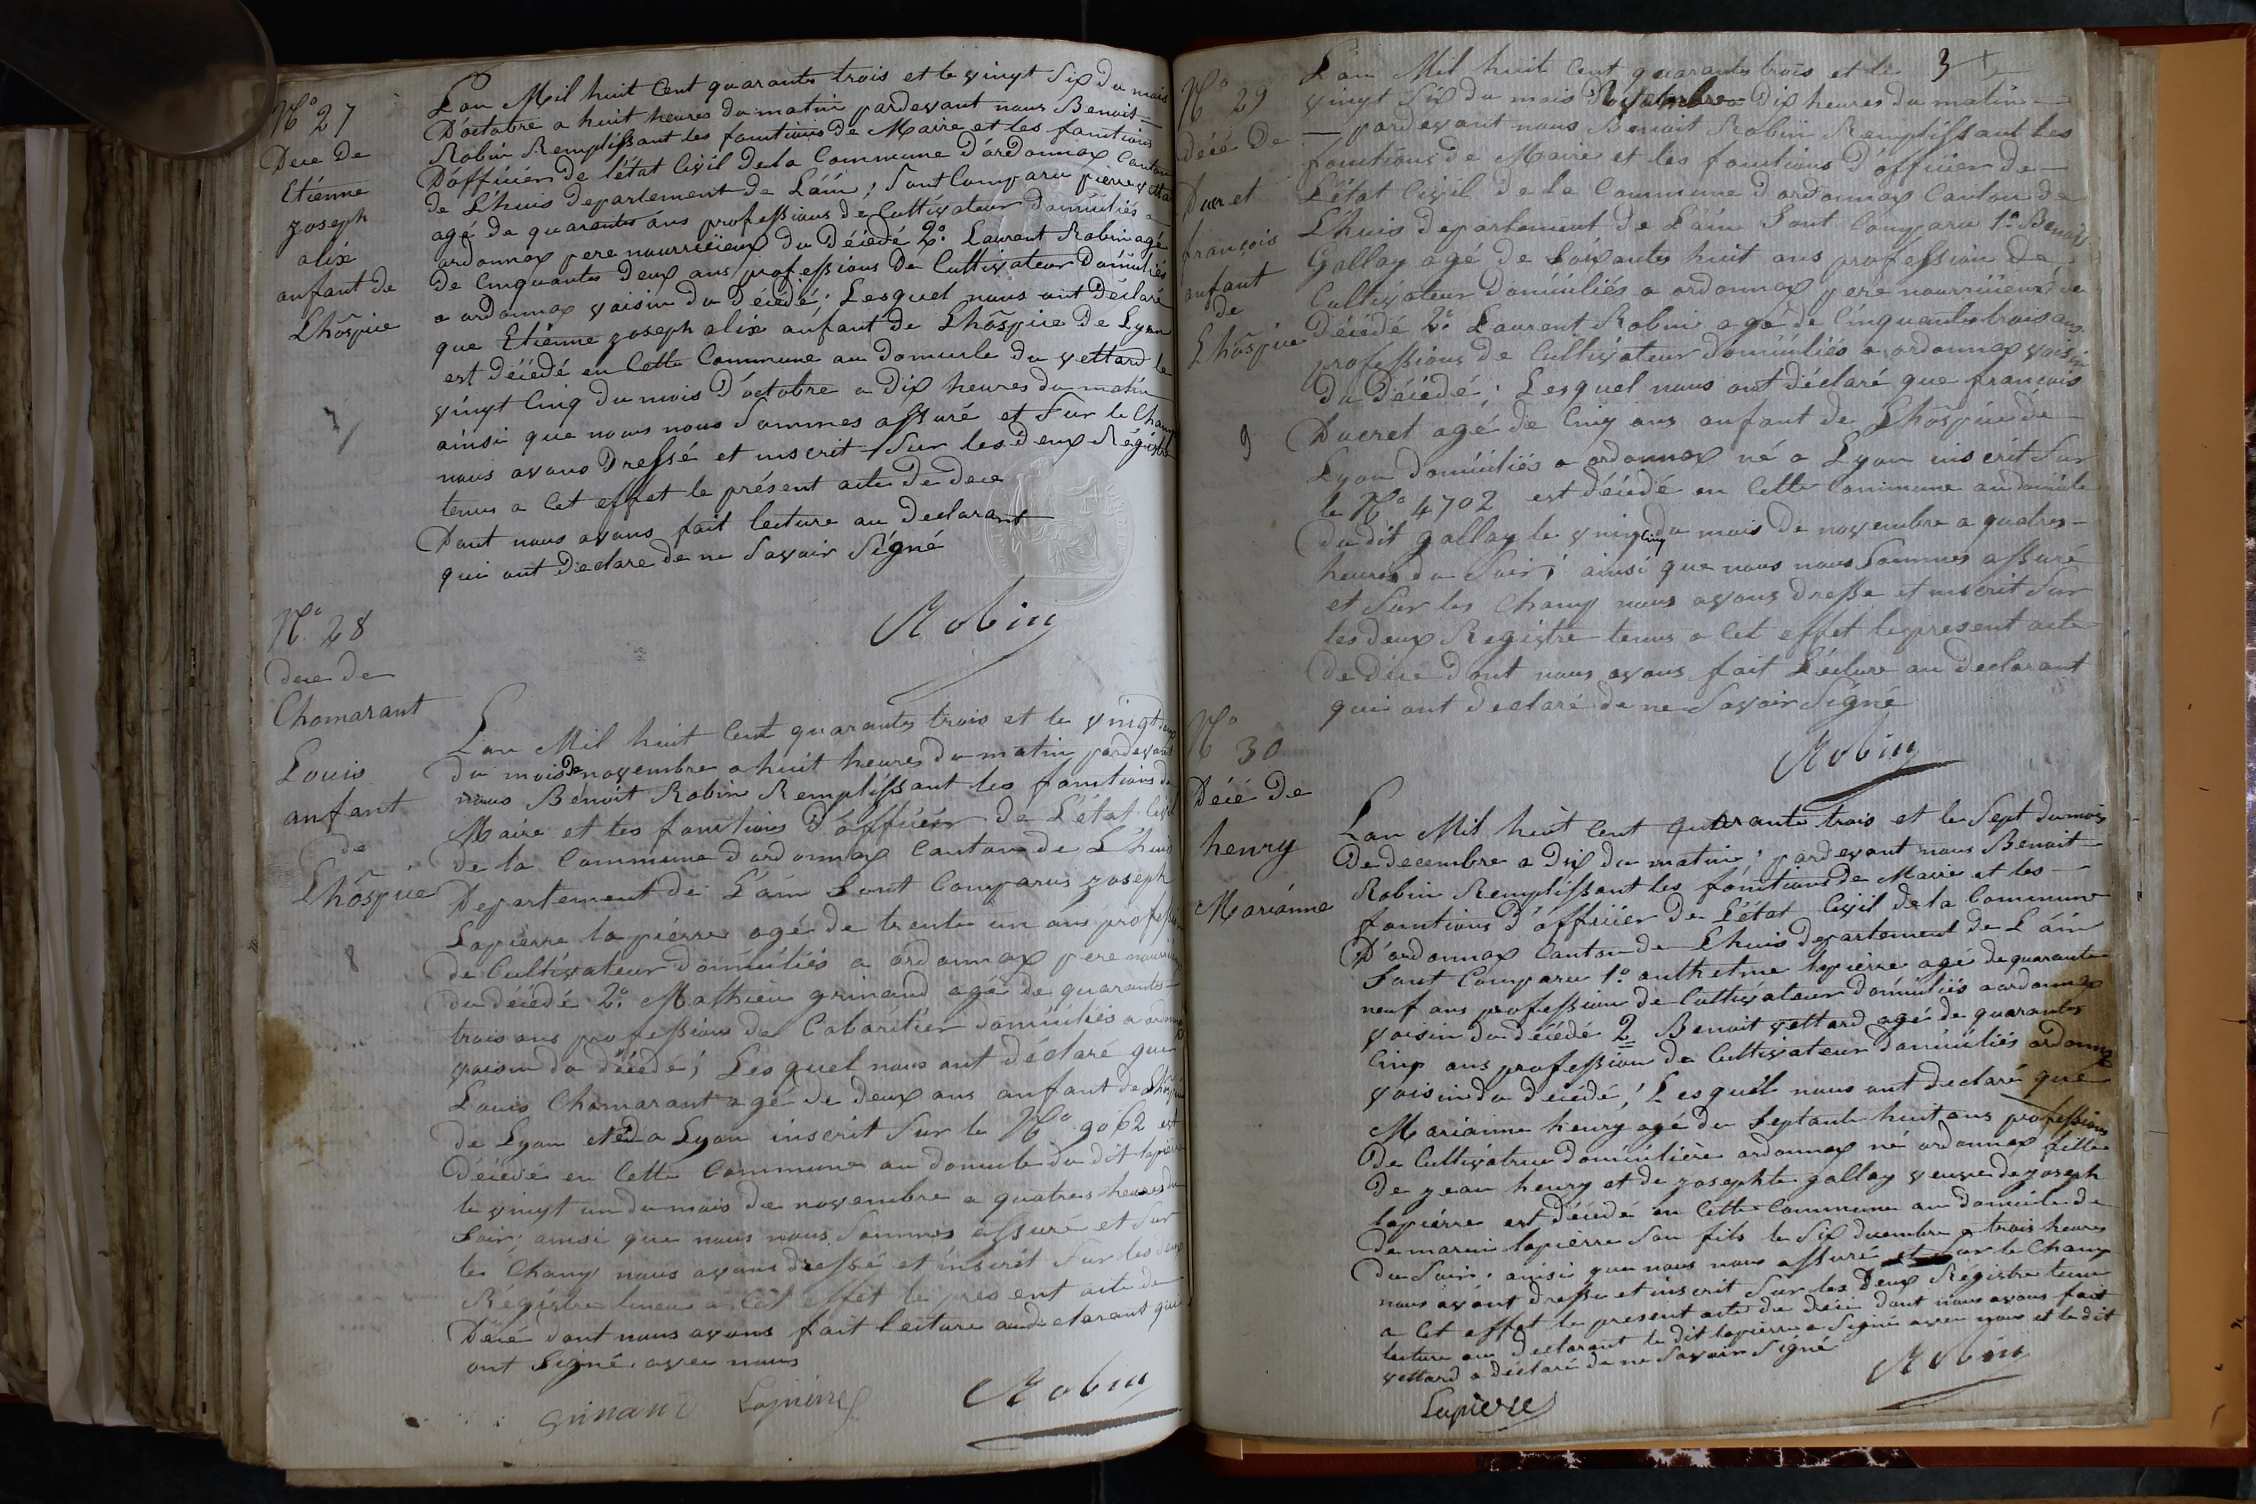 N.o 27
Dece de
Etiénne
zoseph
alix
anfant de
Lhôspice
L'an Mil huit Cent quarante trois et le vingt Six du mois
D'octobre a huit heures du matin pardevant nous Benoit
Robin Remplissant les fonctions de Maire et les fonctions
D'officier de l'état Civil de la Commune d'ordonnax Canton
de Lhuis departement de L'áin ; Sont Comparu pierre vettard
agé de quarante ans professions de Cultivateur domiciliés a
ordonnax pere nourricieux du Décedé 2.o Laurent Robin agé
de Cinquante deux ans professions De Cultivateur Domiciliés
a ordonnax voisin du Décédé ; Lesquel nous ont Déclaré
que Etiénne zoseph alix anfant de Lhôspice de Lyon
est Décédé en Cette Commune au domicile du vettard le
vingt Cinq du mois D'octobre a Dix heures du matin
ainsi que nous nous Sommes assuré et Sur le Champ
nous avons Dressé et inscrit Sur les deux Régistre
tenus a Cet effet le présent acte de Dece
Dont nous avons fait lecture au Declarant
qui ont Declare de ne Savoir Signé
Robin
7
N.o 28
dece de
Chomarant
Louis
anfant
de
Lhôspice
8
L'an Mil huit Cent quarante trois et le vingt deux
du mois De novembre a huit heures du matin pardevant
nous Benoit Robin Remplissant les fonctions de
Maire et les fonctions D'officier de L'état Civil
de la Commune d'ordonnax Canton de Lhuis
Departement de L'áin Sont Comparus zoseph
Lapierre lapiérre agé de trente un ans profession
de Cultivateur domiciliés a ordonnax pere nourricieux
du décédé 2.o Mathieu grinand agé de quarante
trois ans professions de Cabaritier domiciliés a ordonnax
voisin du décédé ; Lesquel nous ont déclaré que
Louis Chomarant agé de deux ans anfant de Lhôspice
de Lyon né a Lyon inscrit Sur le N.o 9062 est
Décedé en Cette Commune au domicile du dit lapierre
le vingt un du mois de novembre a quatres heures du
Soir ; ainsi que nous nous Sommes assuré et Sur
le Champ nous avons dressé et inscrit Sur les deux
Régistre tenus a Cet effet le present acte de
Décé dont nous avons fait lecture au declarant qui
ont Signé avec nous
Grinand Lapierre Robin
3
N.o 29
décé De
Ducret
françois
anfant
de
Lhôspice
9
L'an Mil huit Cent quarante trois et le
vingt Six du mois Novembre Dix heures du matin
pardevant nous Benoit Robin Remplissant les
fonctions de Maire et les fonctions D'officier de
L'état Civil de la Commune d'ordonnax Canton de
Lhuis departement de L'áin Sont Comparu 1.o Benoit
Gallay agé de Soixante huit ans profession de
Cultivateur Domiciliés a ordonnax pere nourricieux du
Décédé 2.o Laurent Robin agé de Cinquante trois ans
professions de Cultivateur domiciliés a ordonnax voisin
Du Décédé ; Lesquel nous ont déclaré que françois
Ducret agé de Cinq ans anfant de Lhôspice de
Lyon domiciliés a ordonnax né a Lyon inscrit Sur
le N.o 4702 est décédé en Cette Commune au domicile
du dit gallay le vingt Cinq du mois de novembre a quatres
heures du Soir ; ainsi que nous nous Sommes assuré
et Sur les Champ nous avons dresse et inscrit Sur
les deux Registre tenus a Cet effet le present acte
de déce dont nous avons fait Lécture au declarant
qui ont declaré de ne Savoir Signé
Robin
N.o 30
Décé De
henry
Mariánne
L'an Mil huit Cent quarante trois et le Sept du mois
De decembre a Dix du matin ; pardevant nous Benoit
Robin Remplissant les fonctions de Maire et les
fonctions d'officier de L'état Civil de la Commune
D'ordonnax Canton de Lhuis departement de L'áin
Sont Comparu 1.o anthelme lapiérre agé de quarante
neuf ans profession de Cultivateur domiciliés a ordonnax
voisin du décédé 2 Benoit vettard agé de quarante
Cinq ans profession de Cultivateur Domiciliés ordonnax
voisin du décédé ; Lesquél nous ont declaré que
Marianne henry agé de Septante huit ans professions
De Cultivatrice domicilière ordonnax né ordonnax fille
De zean henry et de zosephte gallay veuve de zoseph
lapiérre est décedé en Cette Commune au domicile de
De marin lapiérre Son fils le Six decembre a trois heures
du Soir ; ainsi que nous nous assuré et Sur le Champ
nous avont dresse et inscrit Sur les deux Régistre tenu
a Cet effet le present acte de décé dont nous avons fait
lecture au declarant le dit lapierre a Signé avec nous et le dit
vettard a déclaré de ne Savoir Signé
Robin
Lapierre